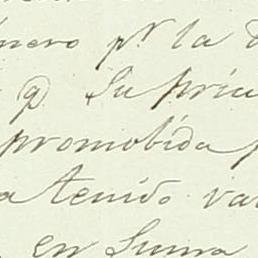 nero pr. la
q. Su pria
promobida p
a tenido va
en Suma